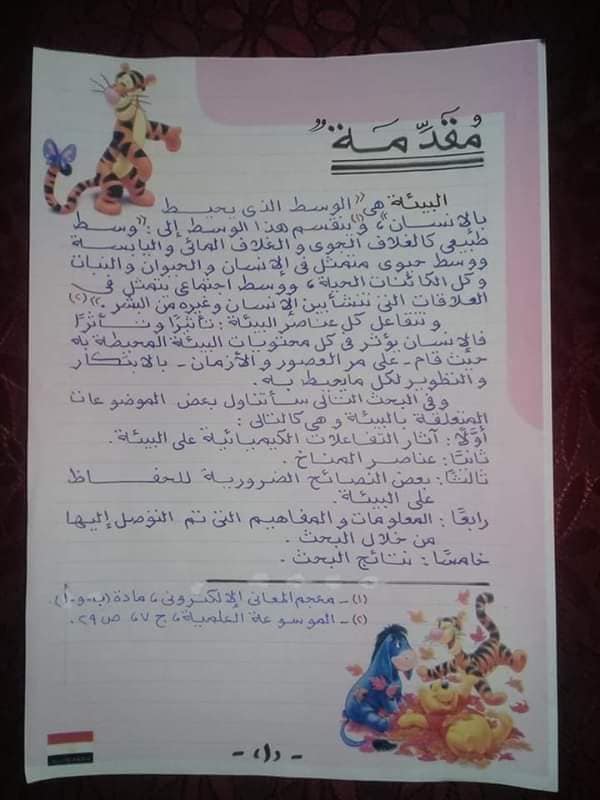 "مُقَدِّمَة"
البيئة هى "الوسط الذى يحيط
بالإنسان"(١)، و ينقسم هذا الوسط إلى: "وسط
طبيعى كالغلاف الجوى و الغلاف المائى واليابسة
ووسط حيوى متمثل فى الإنسان و الحيوان و النبات
و كل الكائنات الحية، ووسط اجتماعى تتمثل فى
العلاقات التى تنشأ بين الإنسان وغيره من البشر."(٢)
و تتفاعل كل عناصر البيئة: تأثيرًا و تأثرًا
فالإنسان يؤثر فى كل محتويات البيئة المحيطة به
حيث قام - على مر العصور و الأزمان - بالابتكار
و التطوير لكل ما يحيط به.
و فى البحث التالى سأتناول بعض الموضوعات
المتعلقة بالبيئة و هى كالتالى:
أولًا: آثار التفاعلات الكيميائية على البيئة.
ثانيًا: عناصر المناخ.
ثالثًا: بعض النصائح الضرورية للحفاظ
على البيئة.
رابعًا: المعلومات و المفاهيم التى تم التوصل إليها
من خلال البحث.
خامسًا: نتائج البحث.
(١) - معجم المعانى الإلكترونى، مادة (ب-و-أ).
(٢) - الموسوعة العلمية، ج٧، ص ٢٩.
- (١) -